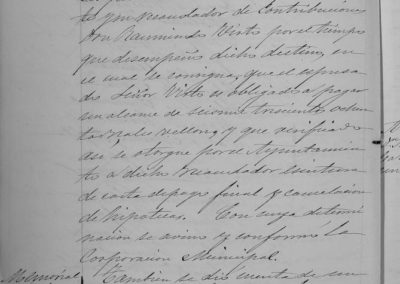 to y un recaudador de Contribuciones
Don Raimundo Visto por el tiempo
que desempeñó dicho destino, en
el cual se consigna, que el espresa
do Señor Visto es obligado a pagar
un alcance de seis mil trescientos ochen
ta reales vellon, y que verificado
asi, se otorgue por el Ayuntamien
to a dicho recaudador Escritura
de carta de pago final y cancelacion
de hipotecas. Con cuya determi
nacion se avino y conformo la
Corporacion Municipal.
Memorial Tambien se dió cuenta de un